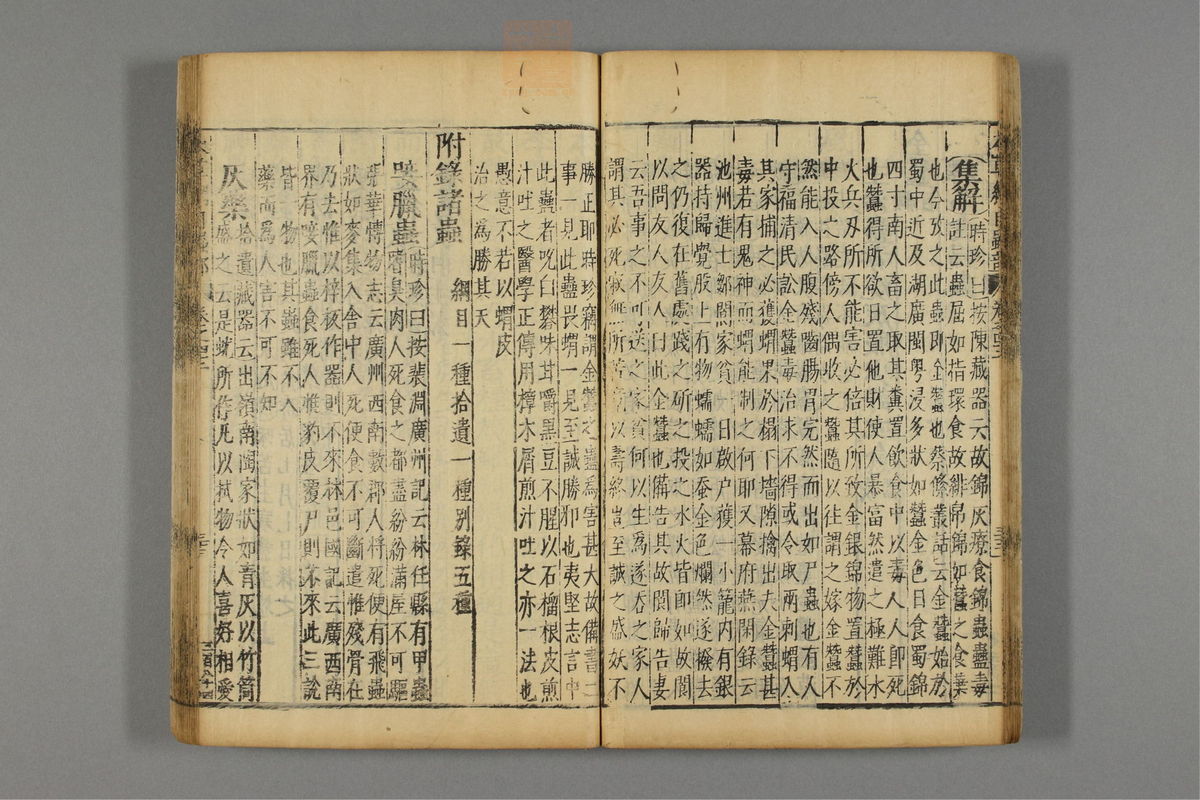 集解時珍曰按陳藏器云故錦灰療食錦蟲蠱毒
註云蟲屈如指環食故緋帛錦如蠶之食葉
也今攷之此蟲即金蠶也蔡絛叢話云金蠶始於
蜀中近及湖廣閩粵浸多狀如蠶金色日食蜀錦
四寸南人畜之取其糞置飲食中以毒人人卽死
也蠶得所欲日置他財使人暴富然遣之極難水
火兵刃所不能害必倍其所致金銀錦物置蠶於
中投之路傍人偶收之蠶隨以往謂之嫁金蠶不
然能入人腹殘嚙腸胃完然而出如尸蟲也有人
守福清民訟金蠶毒治求不得或令取兩刺蝟入
其家捕之必獲蝟果於榻下墻隙擒出夫金蠶甚
毒若有鬼神而蝟能制之何耶又幕府燕閑錄云
池州進士鄒閬家貧一日啟户獲一小籠內有銀
器持歸覺股上有物蠕蠕如蚕金色爛然遂撥去
之仍復在舊處踐之斫之投之水火皆即如故閬
以問友人友人曰此金蠶也備告其故閬歸告妻
云吾事之不可送之家貧何以生爲遂吞之家人
謂其必死寂無所苦竟以壽終豈至誠之盛妖不
勝正耶時珍竊謂金蠶之蠱爲害甚大故備書二
事一見此蠱畏蝟一見至誠勝邪也夷堅志言中
此蠱者吮白礬味甘嚼黑豆不腥以石榴根皮煎
汁吐之醫學正傳用樟木屑煎汁吐之亦一法也
愚意不若以蝟皮
治之爲勝其天
附錄諸蟲 綱目一種拾遺一種別錄五種
唼臘蟲時珍曰按裴淵廣州記云林任縣有甲蟲
嗜臭肉人死食之都盡紛紛滿屋不可驅
張華博物志云廣州西南數郡人將死便有飛蟲
狀如麥集入舍中人死便食不可斷遣惟殘骨在
乃去惟以梓板作器則不來林邑國記云廣西南
界有唼臘蟲食死人惟豹皮覆尸則不來此三說
皆一物也其蟲雖不入
藥而爲人害不可不知
灰藥拾遺藏器云出嶺南陶家狀如青灰以竹筒
盛之云是蛇所作凡以拭物令人喜好相愛